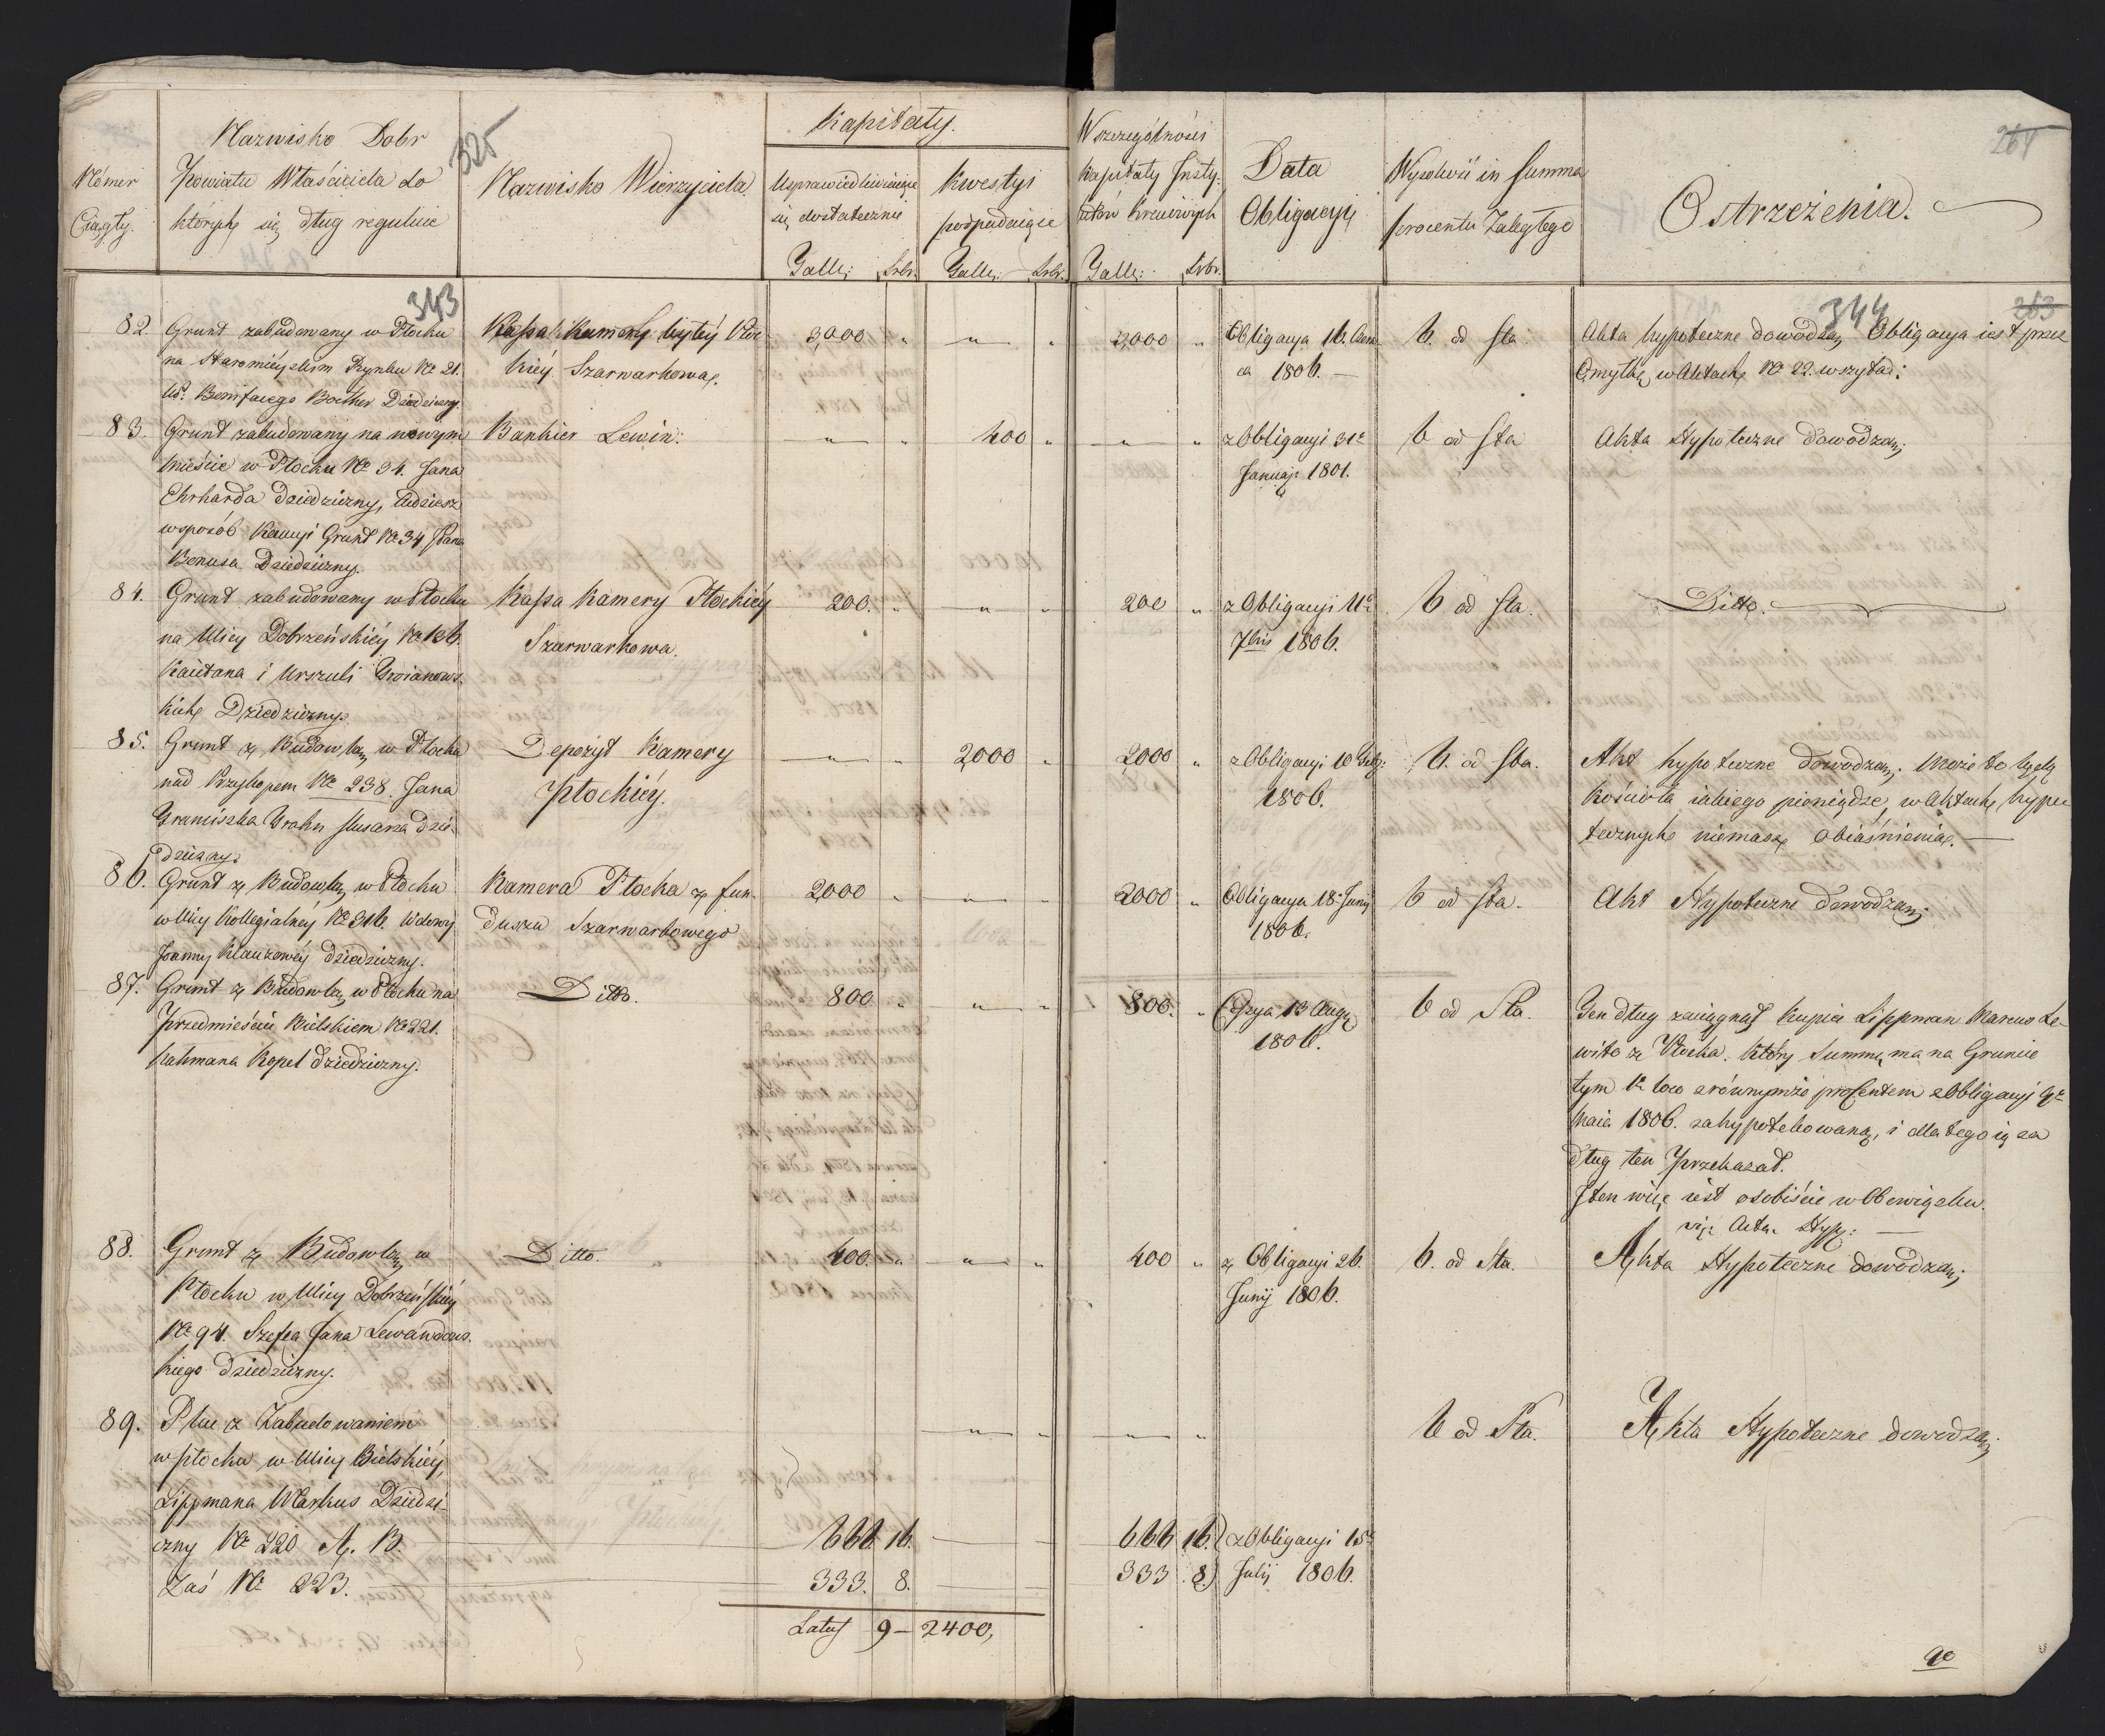 325
Kapitały.
Nómer
Ciągły.
Nazwisko Dobr
Powiatu Właściciela do
których się dług reguluie
Nazwisko Wierzyciela
Usprawiedliwiaiące
się dostatecznie
Tall: Srbr.
Kwestyi
podpadaiące
Tall: Srbr.
W szczególności
Kapitały Insty-
tutów
Tall: Srbr.
Data
Obligacyi
Wysokość in Summa
procentu Zaległego
Ostrzeżenia.
264
343
344
263
82. Grunt zabudowany w Płocku
na Staromieyskim Rynku No 21.
Bonifacego Dziedziczny.
Kassa Kamery byłéy Płoc-
kiéy Szarwarkowa.
3,000 " — " — "
3,000 "
Obligacya 16.
1806. —
6. od Sta
Akta hypoteczne dowodzą, Obligacya iest przez
Omyłkę w Aktach No 22. wszyta:
83. Grunt zabudowany na nowym
mieście w Płocku No 34. Jana
Ehrharda dziedziczny, tudziesz
wsposób Kaucyi Grunt No 34
Bonusa Dziedziczny.
Bankier Lewin.
— " — " 400 "
— " — "
z Obligacyi 31o
Januar. 1801.
6 od Sta
Akta Hypoteczne dowodzą,
84. Grunt zabudowany w Płocku
na Ulicy Dobrzeńskiéy No 136.
Kaietana i Urszuli
kich Dziedziczny.
Kassa Kamery Płockiéy
Szarwarkowa.
200. " — " — "
200 "
z Obligacyi 11o
7bris 1806.
6 od Sta.
Ditto.
85. Grunt z Budowlą w Płocku
nad Przykopem No 238. Jana
Franciszka Grahn slusarza dzie-
dziczny.
Depozyt Kamery
Płockiéy.
— " — " 2,000 "
2,000 "
z Obligacyi 10
1806.
6. od Sta.
Akt hypoteczne dowodzą, może to były
Kościoła iakiego pieniądze, w Aktach hypo
tecznych niemasz obiaśnienia. —
86. Grunt z Budowlą w Płocku
w Ulicy Kollegialnéy No 316. Wdowy
Joanny Klauzowéy dziedziczny.
Kamera Płocka z fun-
duszu Szarwarkowego
2,000 " — " — "
2000 "
Obligacya 18. Junij
1806.
6 od Sta.
Akt Hypoteczne dowodzą,
87. Grunt z Budowlą w Płocku na
Przedmieściu Bielskiem No 221.
Kalmana Kopel dziedziczny.
Ditto.
800 " — " — "
800. "
Cessya 13 Augu
1806.
6 od Sta.
Ten dług zaciągnął Kupiec Lippman Marcus Le-
wita z Płocka. który Summę ma na Gruncie
tym 1o loco z równymże procentem z Obligacyi 9o
Maia 1806. zahypotekowaną, i dla tego ią za
dług ten Przekazał.
Iten więc iest osobiście w Obowiązku.
vi: Acta Hyp: —
88. Grunt z Budowlą w
Płocku w Ulicy Dobrzeńskiéy
No 94. Szefca Jana Lewandows-
kiego dziedziczny.
Ditto.
400. " — " — "
400 "
z Obligacyi 26.
Junij 1806.
6. od Sta.
Akta Hypoteczne dowodzą,
89. Plac z Zabudowaniem
w Płocku w Ulicy Bielskiéy,
Lippmana Markus Dziedzi-
czny No 220 A. B.
Zaś No 223.
— " — "
666 16. —
333. 8. —
— " — "
666 16.) z Obligacyi 15o
333. 8.) Julij 1806.
6 od Sta.
Akta Hypoteczne dowodzą,
Latus 9 — 2400,